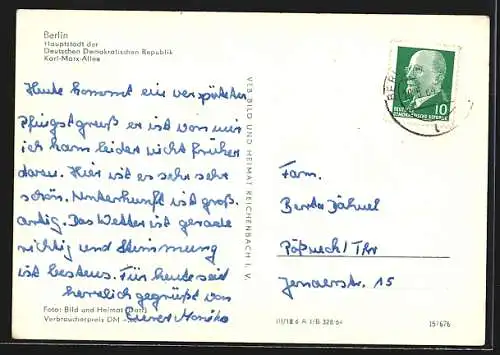 Berlin
Hauptstadt der
Deutschen Demokratischen Republik
Karl-Marx-Allee
Heute kommt ein verspäteter
Pfingstgruß er ist von mir
ich kam leider nicht früher
daran. Hier ist es sehr sehr
schön. Unterkunft ist groß-
artig. Das Wetter ist gerade
richtig und Stimmung
ist bestens. Für heute seid
herzlich gegrüßt von
Eurer Monika
Foto: Bild und Heimat
Verbraucherpreis DM
VEB BILD UND HEIMAT REICHENBACH I. V.
BERL
10
DEUTSCHE
DEMOKRATISCHE REPUBLIK
Fam.
Jähnel
Pößneck/Thr
Jenaerstr. 15
III/18 6 A 1/B 328/64
151676